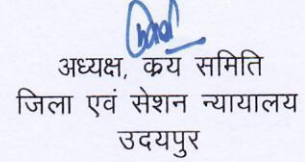 अध्यक्ष, क्रय समिति
जिला एवं सेशन न्यायालय
उदयपुर